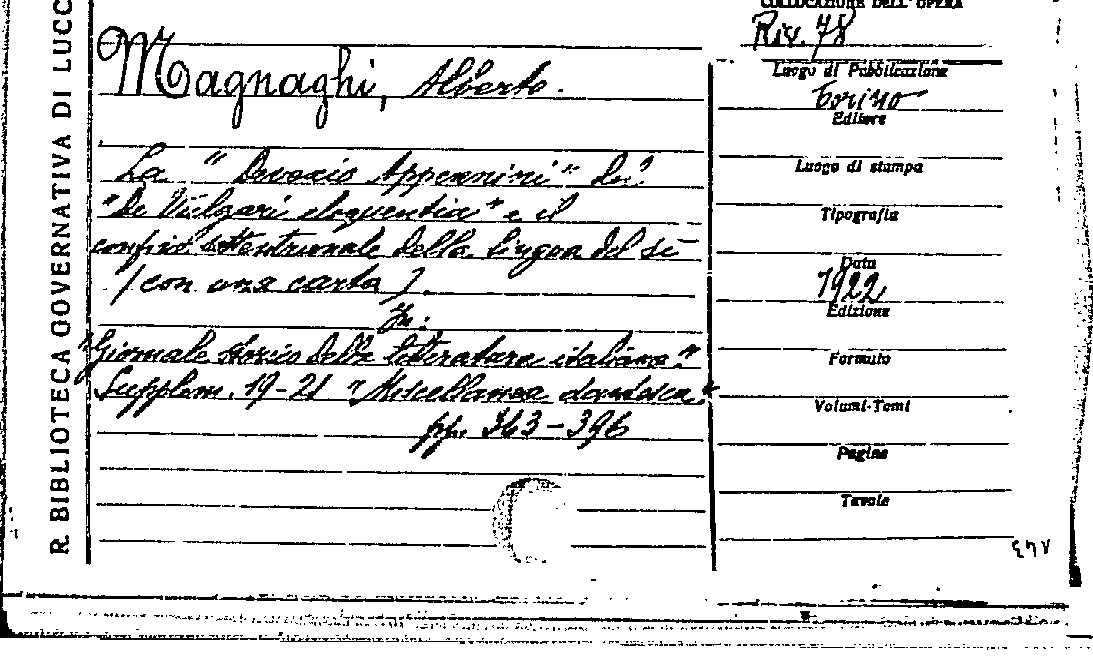 R. BIBLIOTECA GOVERNATIVA DI LUCC
Magnaghi, Alberto.
La "Devexio Appennini" del
"De Vulgari eloquentia" e il
confine settentrionale della lingua del sì
(con una carta).
In:
"Giornale storico della letteratura italiana."
Supplem. 19-21 "Miscellanea dantesca"
pp. 363-396
COLLOCAZIONE DELL'OPERA
Riv. 78
Luogo di Pubblicazione
Torino
Editore
Luogo di stampa
Tipografia
Data
1922
Edizione
Formato
Volumi-Tomi
Pagine
Tavole